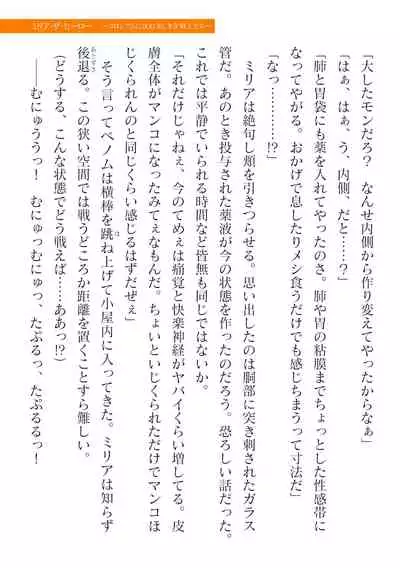 ミリア・ザ・ヒーロー
「大したモンだろ？　なんせ内側から作り変えてやったからなぁ」
「はぁ、はぁ、う、内側、だと……？」
「肺と胃袋にも薬を入れてやったのさ。肺や胃の粘膜までちょっとした性感帯に
なってやがる。おかげで息したりメシ食うだけでも感じちまうって寸法だ」
「なっ………!?」
　ミリアは絶句し頬を引きつらせる。思い出したのは胸部に突き刺されたガラス
管だ。あのとき投与された薬液が今の状態を作ったのだろう。恐ろしい話だった。
これでは平静でいられる時間など皆無も同じではないか。
「それだけじゃねぇ、今のてめぇは痛覚と快楽神経がヤバイくらい増してる。皮
膚全体がマンコになったみてぇなもんだ。ちょいといじくられただけでマンコほ
じくられんのと同じくらい感じるはずだぜぇ」
　そう言ってベノムは横棒を跳ね上げて小屋内に入ってきた。ミリアは知らず
は
後退る。この狭い空間では戦うどころか距離を置くことすら難しい。
あとずさ
（どうする、こんな状態でどう戦えば……ああっ!?）
　――むにゅううっ！　むにゅっむにゅっ、たぷるっ、たぷるるっ！